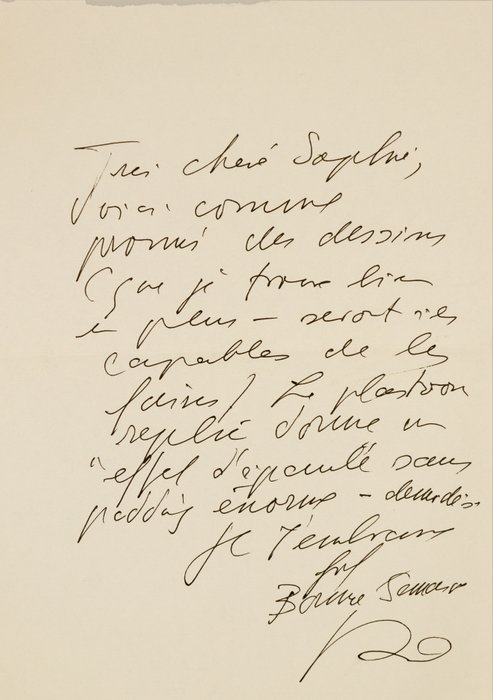 Très chère Sophie,
voici comme
promis des dessins
(que je trouve bien
en plus – seront-ils
capables de les
faires) Le plastron
replié donne un
"effet d'épaulé sans
padding énorme –
Je t'embrasse
Bonne Semaine